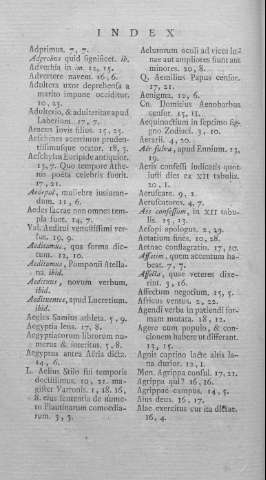 INDEX
Adprimus. 7, 7.
Adprobus quid significet. ib.
Adverbia in im. 12, 15.
Advertere navem. 16, 6.
Adultera uxor deprehensa a
marito impune occiditur.
10, 23.
Adulterio, & adulteritate apud
Laberium. 17, 7.
Aeacus Iovis filius. 15, 21.
Aeschines acerrimus prudentissimusque
orator. 18, 3.
Aeschylus Euripide antiquior.
13, 7. Quo tempore Athenis
poëta celebris fuerit.
17, 21.
muliebre iusiurandum.
11, 6.
Aedes sacrae non omnes templa
sunt. 14, 7.
Val. Aeditui venustissimi versus.
19, 9.
Aeditumus, qua forma dictum.
12, 10.
Aeditumus, Pomponii Atellana.
ibid.
Aedituus, novum verbum,
ibid.
Aedituentes, apud Lucretium.
ibid.
Aegles Samius athleta. 5, 9.
Aegyptia lens. 17, 8.
Aegyptiacorum librorum numerus
& interitus.
Aegyptus antea Aëria dicta.
14, 6.
L. Aelius Stilo sui temporis
doctissimus. 10, 21. magister
Varronis. 1, 18. 16,
8. eius sententia de numero
Plautinarum comoediarum.
3, 3.
Aelurorum oculi ad vices lunae
aut ampliores fiunt aut
minores. 20, 8.
Q. Aemilius Papus censor.
17, 21.
Aenigma. 12, 6.
Cn. Domicius Aenobarbus
censor. 15, 11.
Aequinoctium in septimo signo
Zodiaci. 3, 10.
Aerarii. 4, 20.
Aër fulva, apud Ennium. 13,
19.
Aeris confessi iudicatis quot
iusti dies ex XII tabulis.
20, 1.
Aeruscare. 9, 2.
Aeruscatores. 4, 7.
Aes confessum, in XII tabulis.
15, 13.
Aesopi apologus. 2, 29.
Aestatium fines. 10, 28.
Aetnae conflagratio. 17, 10.
Affatim, quem accentum habeat.
7, 7.
Affecta, quae veteres dixerint.
3, 16.
Affectum negotium. 15, 5.
Africus ventus. 2, 22.
Agendi verba in patiendi formam
mutata. 18, 12.
Agere cum populo, & concionem
habere ut differant.
13, 15.
Agnis caprino lacte altis lana
durior. 12, 1.
Men. Agrippa consul. 17, 21.
Agrippa qui? 16, 16.
Agrippae campus. 14, 5.
Aius deus. 16, 17.
Alae exercitus cur ita dictae.
16, 4.